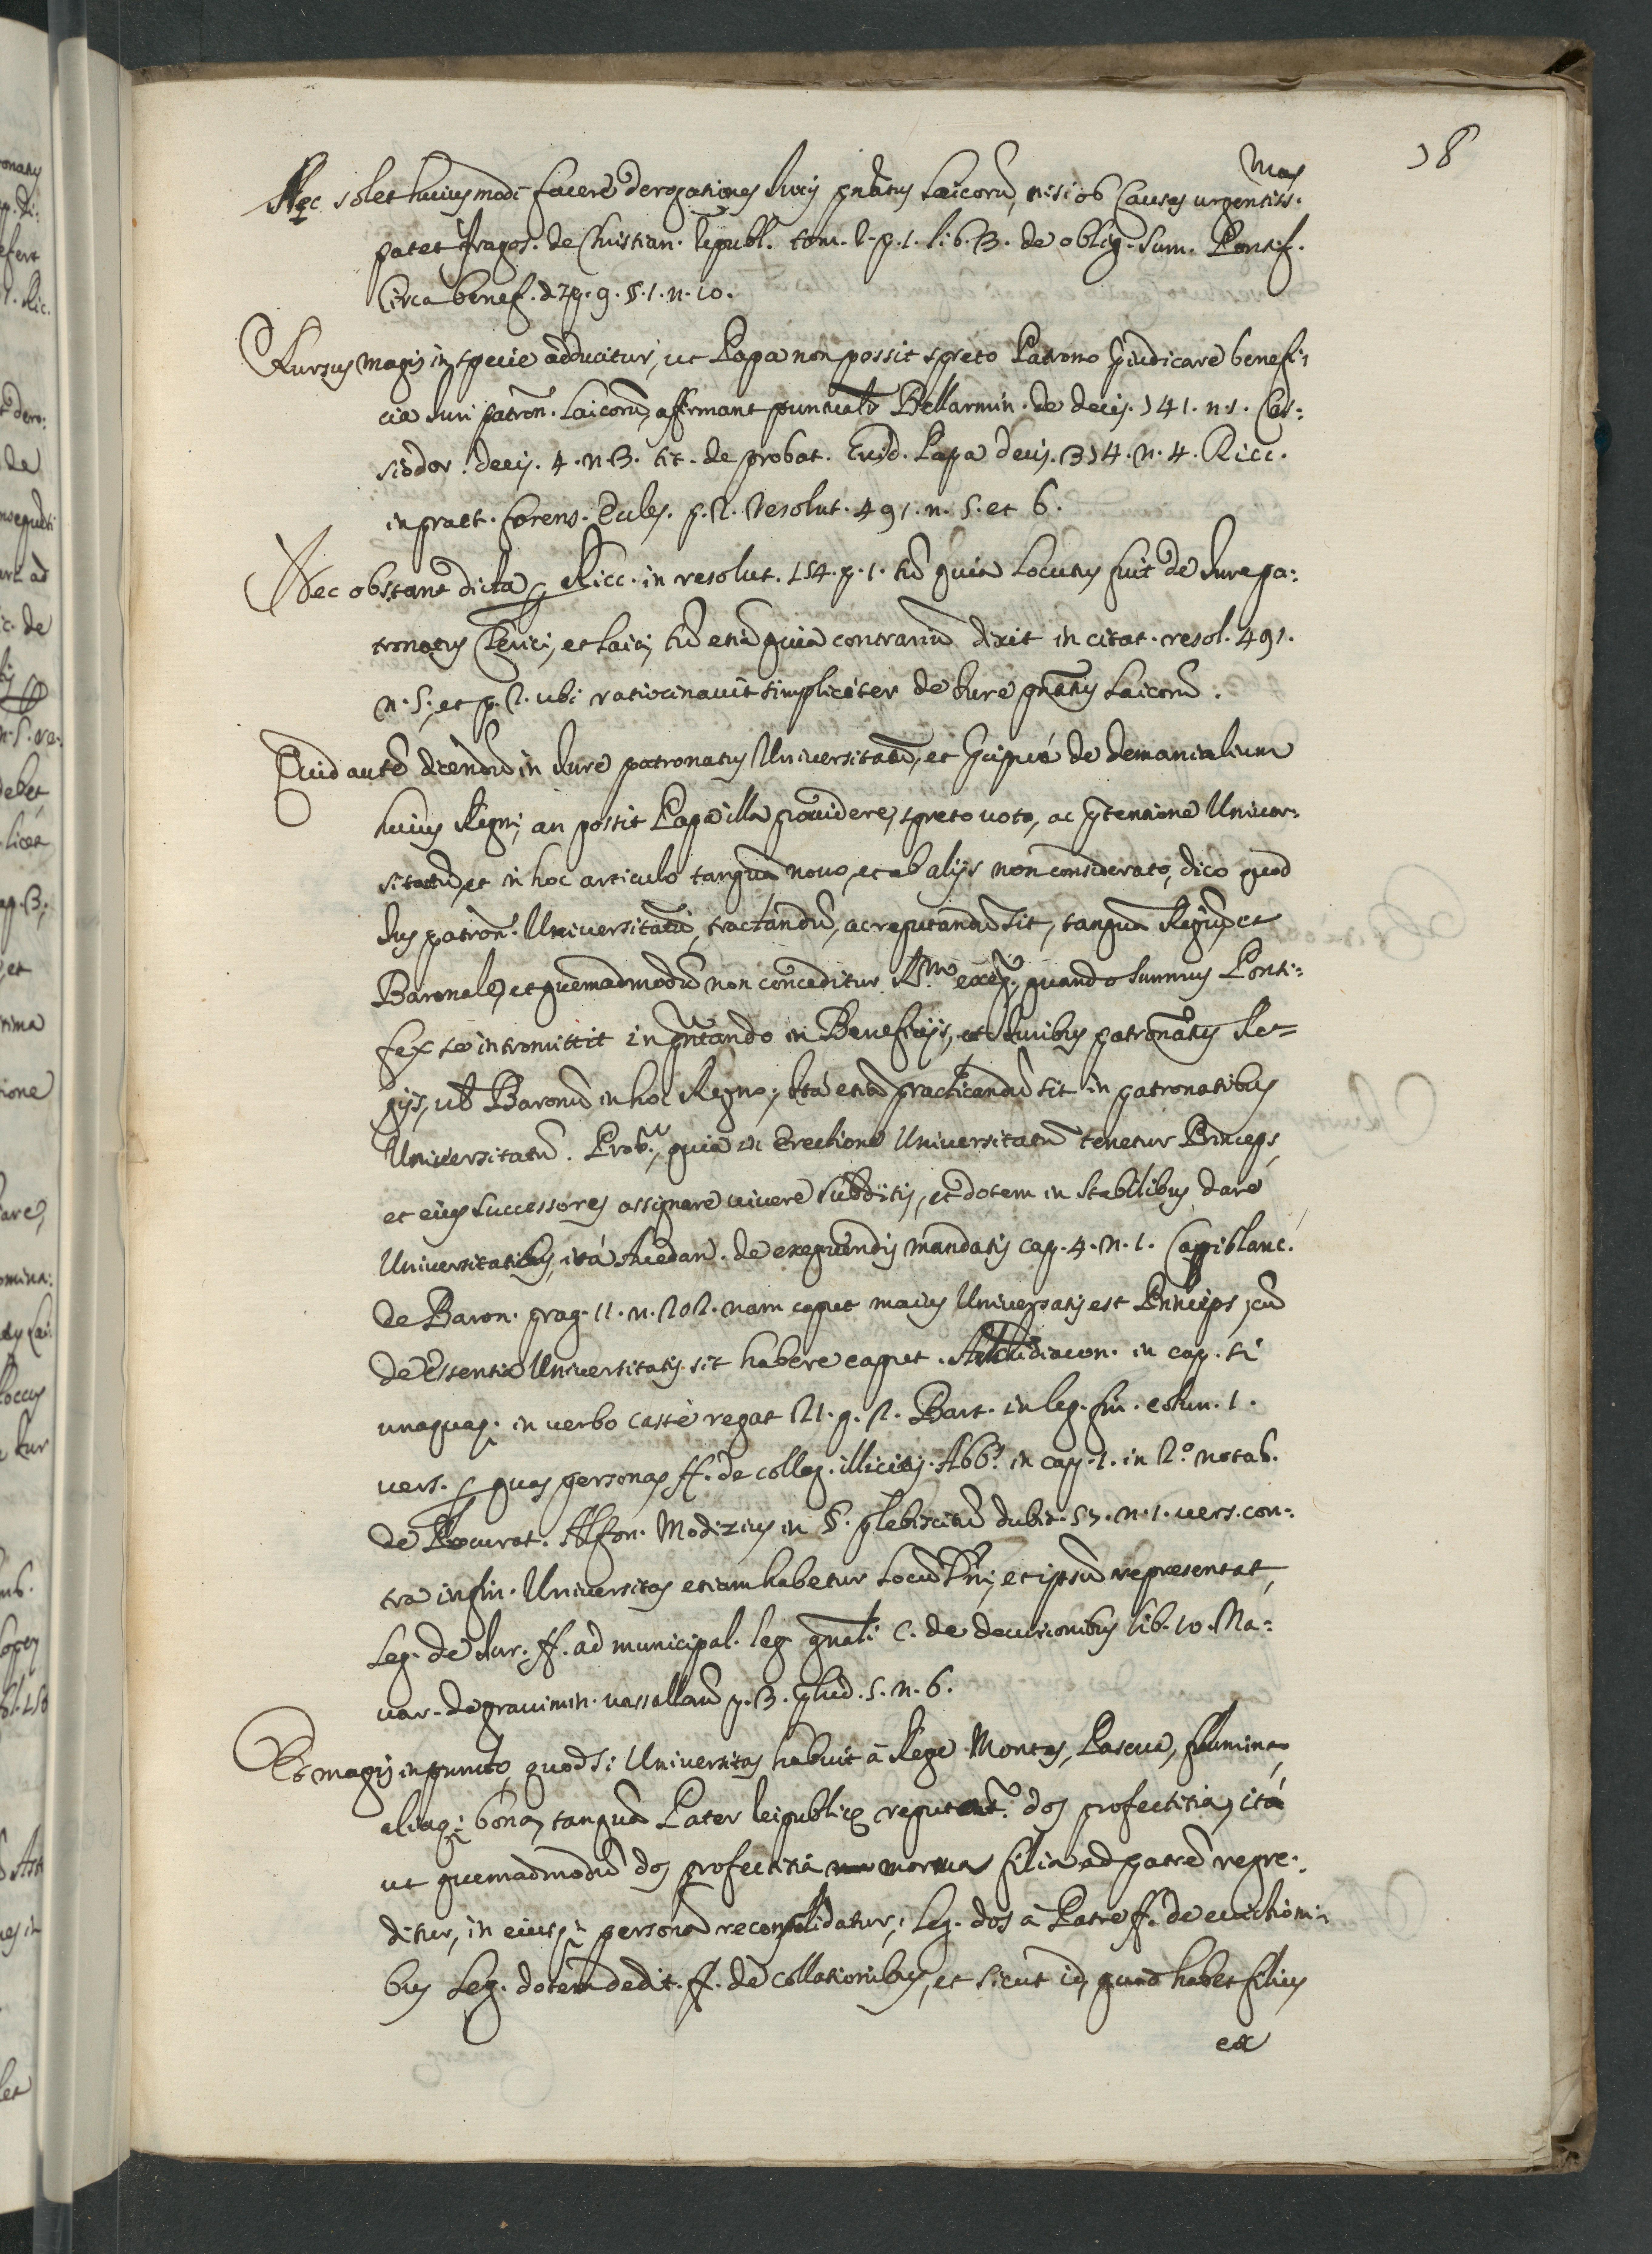 38
Nec solet huiusmodi facere derogationes Juris pñatus Laicorũ, nisi ob Causas urgentiss.mas
patet Fragos. de Christian. Republ. tom. 2. p. 1. lib. 3. de oblig. Sum. Pontif.
Circa benef. disp. 9. §. 1. n. 10.
Rursus magis in specie adducitur, ut Papa non possit spreto Patrono p̃iudicare benefi:
cia Juri patron. Laicorũ, affirmant punctualr̃ Bellarmin. de decis. 341. n. 1. Cas:
siodor. decis. 4. n. 3. tit. de probat. Guid. Papa decis. 334. n. 4. Ricc.
in praet. forens. Eccles. p. 2. resolut. 491. n. 5. et 6.
Nec obstant dicta p̲ Ricc. in resolut. 154. p. 1. tũ quia Locutus fuit de Jurepa:
tronatus Clerici, et Laici, tũ etiã quia contrariũ dixit in citat. resol. 491.
n. 5. et p. 2. ubi ratiocinavit simpliciter de Jure pñatus Laicorũ.
Quid autẽ dicendũ in Jure patronatus Universitatũ, et p̃cipuè de demanialium
huius Regni, an possit Papa illa providere, spreto voto, ac p̃tensione Univer:
sitatũ, et in hoc articulo tanquã novo, et ab alijs non considerato, dico quod
Jus patron. Universitatũ, tractandũ, ac reputandũ sit, tanquã Regiũ, et
Baronale, et quemadmodũ non conceditur R.m exeq., quando Summus Ponti:
fex se intromittit in pñtando in Beneficijs, et Juribus patronatus Re=
gijs, vel Baronũ in hoc Regno; Ita etiã practicandũ sit in patronatibus
Universitatũ. Prob.r, quia in Erectione Universitatũ tenetur Princeps,
et eius successores assignare vivere subditis, et dotem in stabilibus dare
Universitatibus, ità Avedan. de exequendis mandatis cap. 4. n. 1. Capiblanc.
de Baron. prag. 11. n. 202. nam caput maius Universatis est Princeps, cũ
de essentia Universitatis sit habere caput. Archidiacon. in cap. si
unaquaq; in verbo castè regat 21. q. 2. Bart. in leg. fin. colun. 1.
vers. p̲ quas personas ff. de colleg. illicitis. Abb.s in cap. 1. in 2.º notab.
de Procurat. Alfon. Modizius in §. plebiscitũ dubit. 57. n. 1. vers. con:
tra in fin. Universitas etiam habetur Locũ Pñi, et ipsũ repraesentat,
Leg. de Jur. ff. ad municipal. leg. gñali C. de decurionibus lib. 10. Na:
var. de gravimin. vassallorũ p. 3. p̃lud. 5. n. 6.
Et magis in puncto, quod si Universitas habuit à Rege Montes, Pascua, flumina,
aliaq; bona, tanquã Pater Reipublice reputant.r dos profectitia, ità
ut quemadmodũ dos profectitia mortua filia ad patrẽ regre:
ditur, in eiusq; personã reconsolidatur, Leg. dos à Patre ff. de evictioni:
bus Leg. dotem dedit. ff. de collationibus, et sicut id, quod habet filius
ex